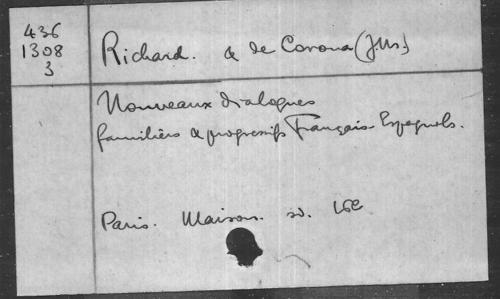 436
1308
3
Richard. & de Corona (J.M.)
Nouveaux dialogues
familiers & progressifs Français-Espagnols.
Paris. Maison. sd. 16º